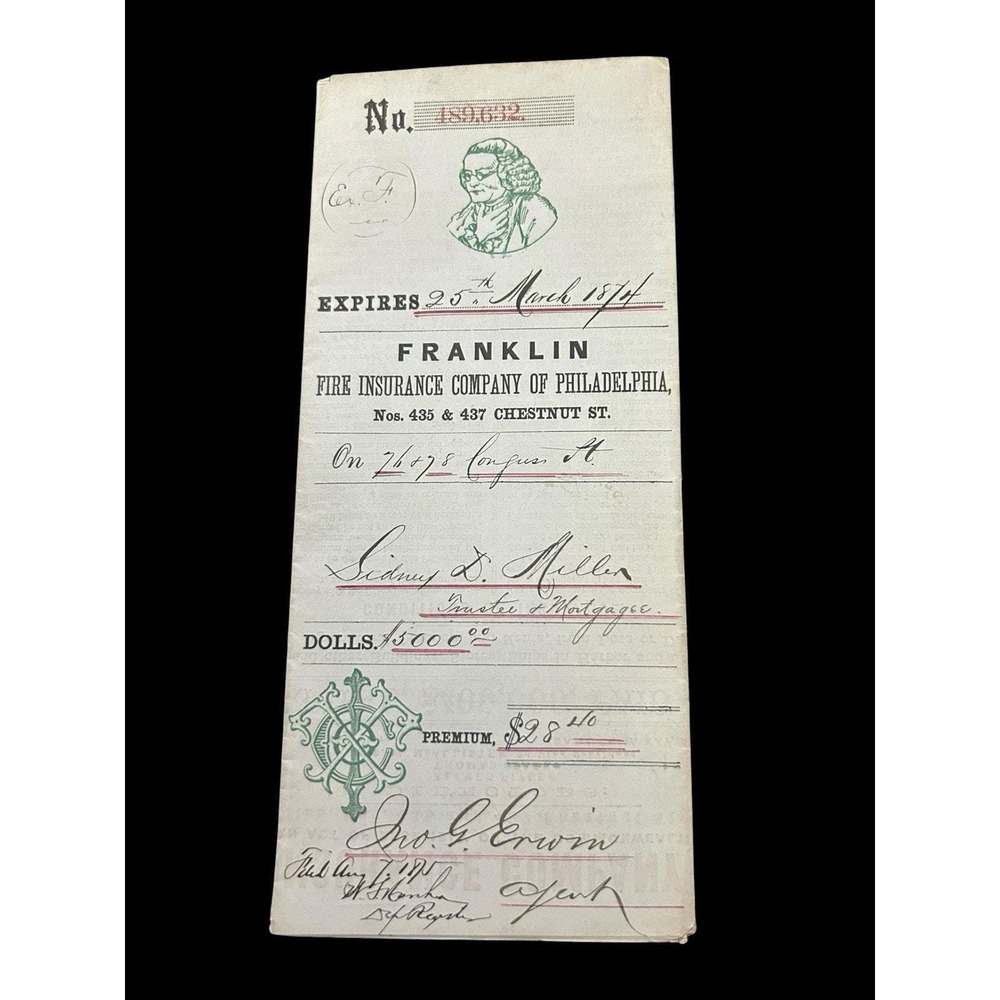 No. 489,632.
Ex. F.
EXPIRES 25th March 1874
FRANKLIN
FIRE INSURANCE COMPANY OF PHILADELPHIA,
Nos. 435 & 437 CHESTNUT ST.
On 76 & 78 Congress St.
Sidney D. Miller
Trustee & Mortgagee.
DOLLS. $5000 00
PREMIUM, $28 40
Jno. G. Erwin
Agent
Filed Aug 7. 1875
Dep Register